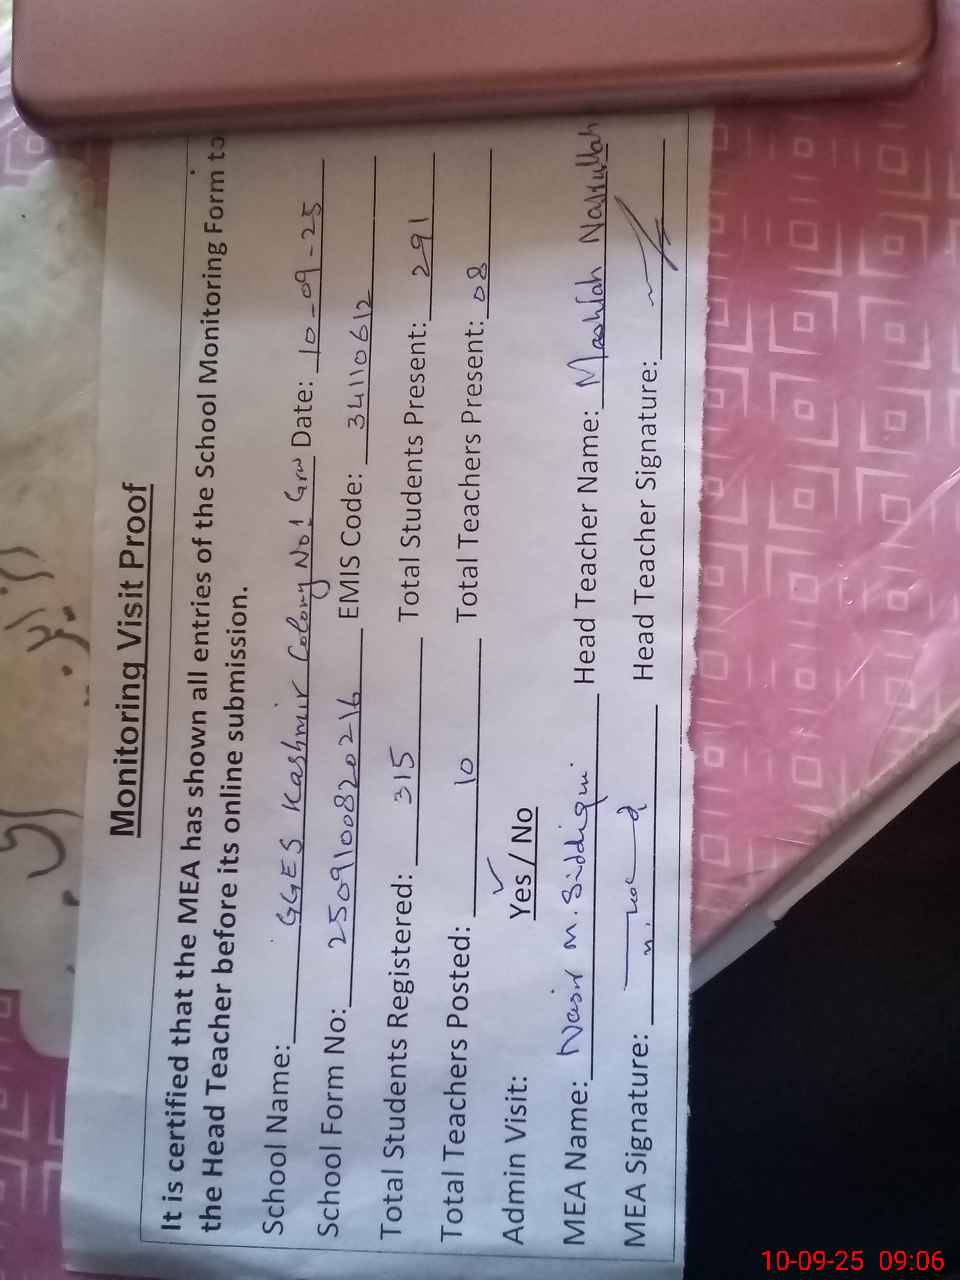 Monitoring Visit Proof
It is certified that the MEA has shown all entries of the School Monitoring Form to
the Head Teacher before its online submission.
School Name: GGES Kashmir Colony No.1 Grw Date: 10-09-25
School Form No: 2509100820216 EMIS Code: 34110612
Total Students Registered: 315 Total Students Present: 291
Total Teachers Posted: 10 Total Teachers Present: 08
Admin Visit: Yes / No
MEA Name: Nasir M. Siddiqui Head Teacher Name: Nasrullah
MEA Signature: Head Teacher Signature:
10-09-25 09:06